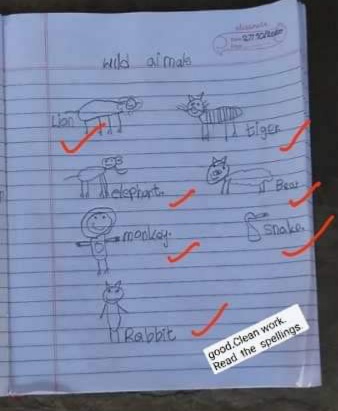 wild aimals
Lion
tiger.
elephant.
Bear
monkey.
snake.
Rabbit
good.Clean work.
Read the spellings.